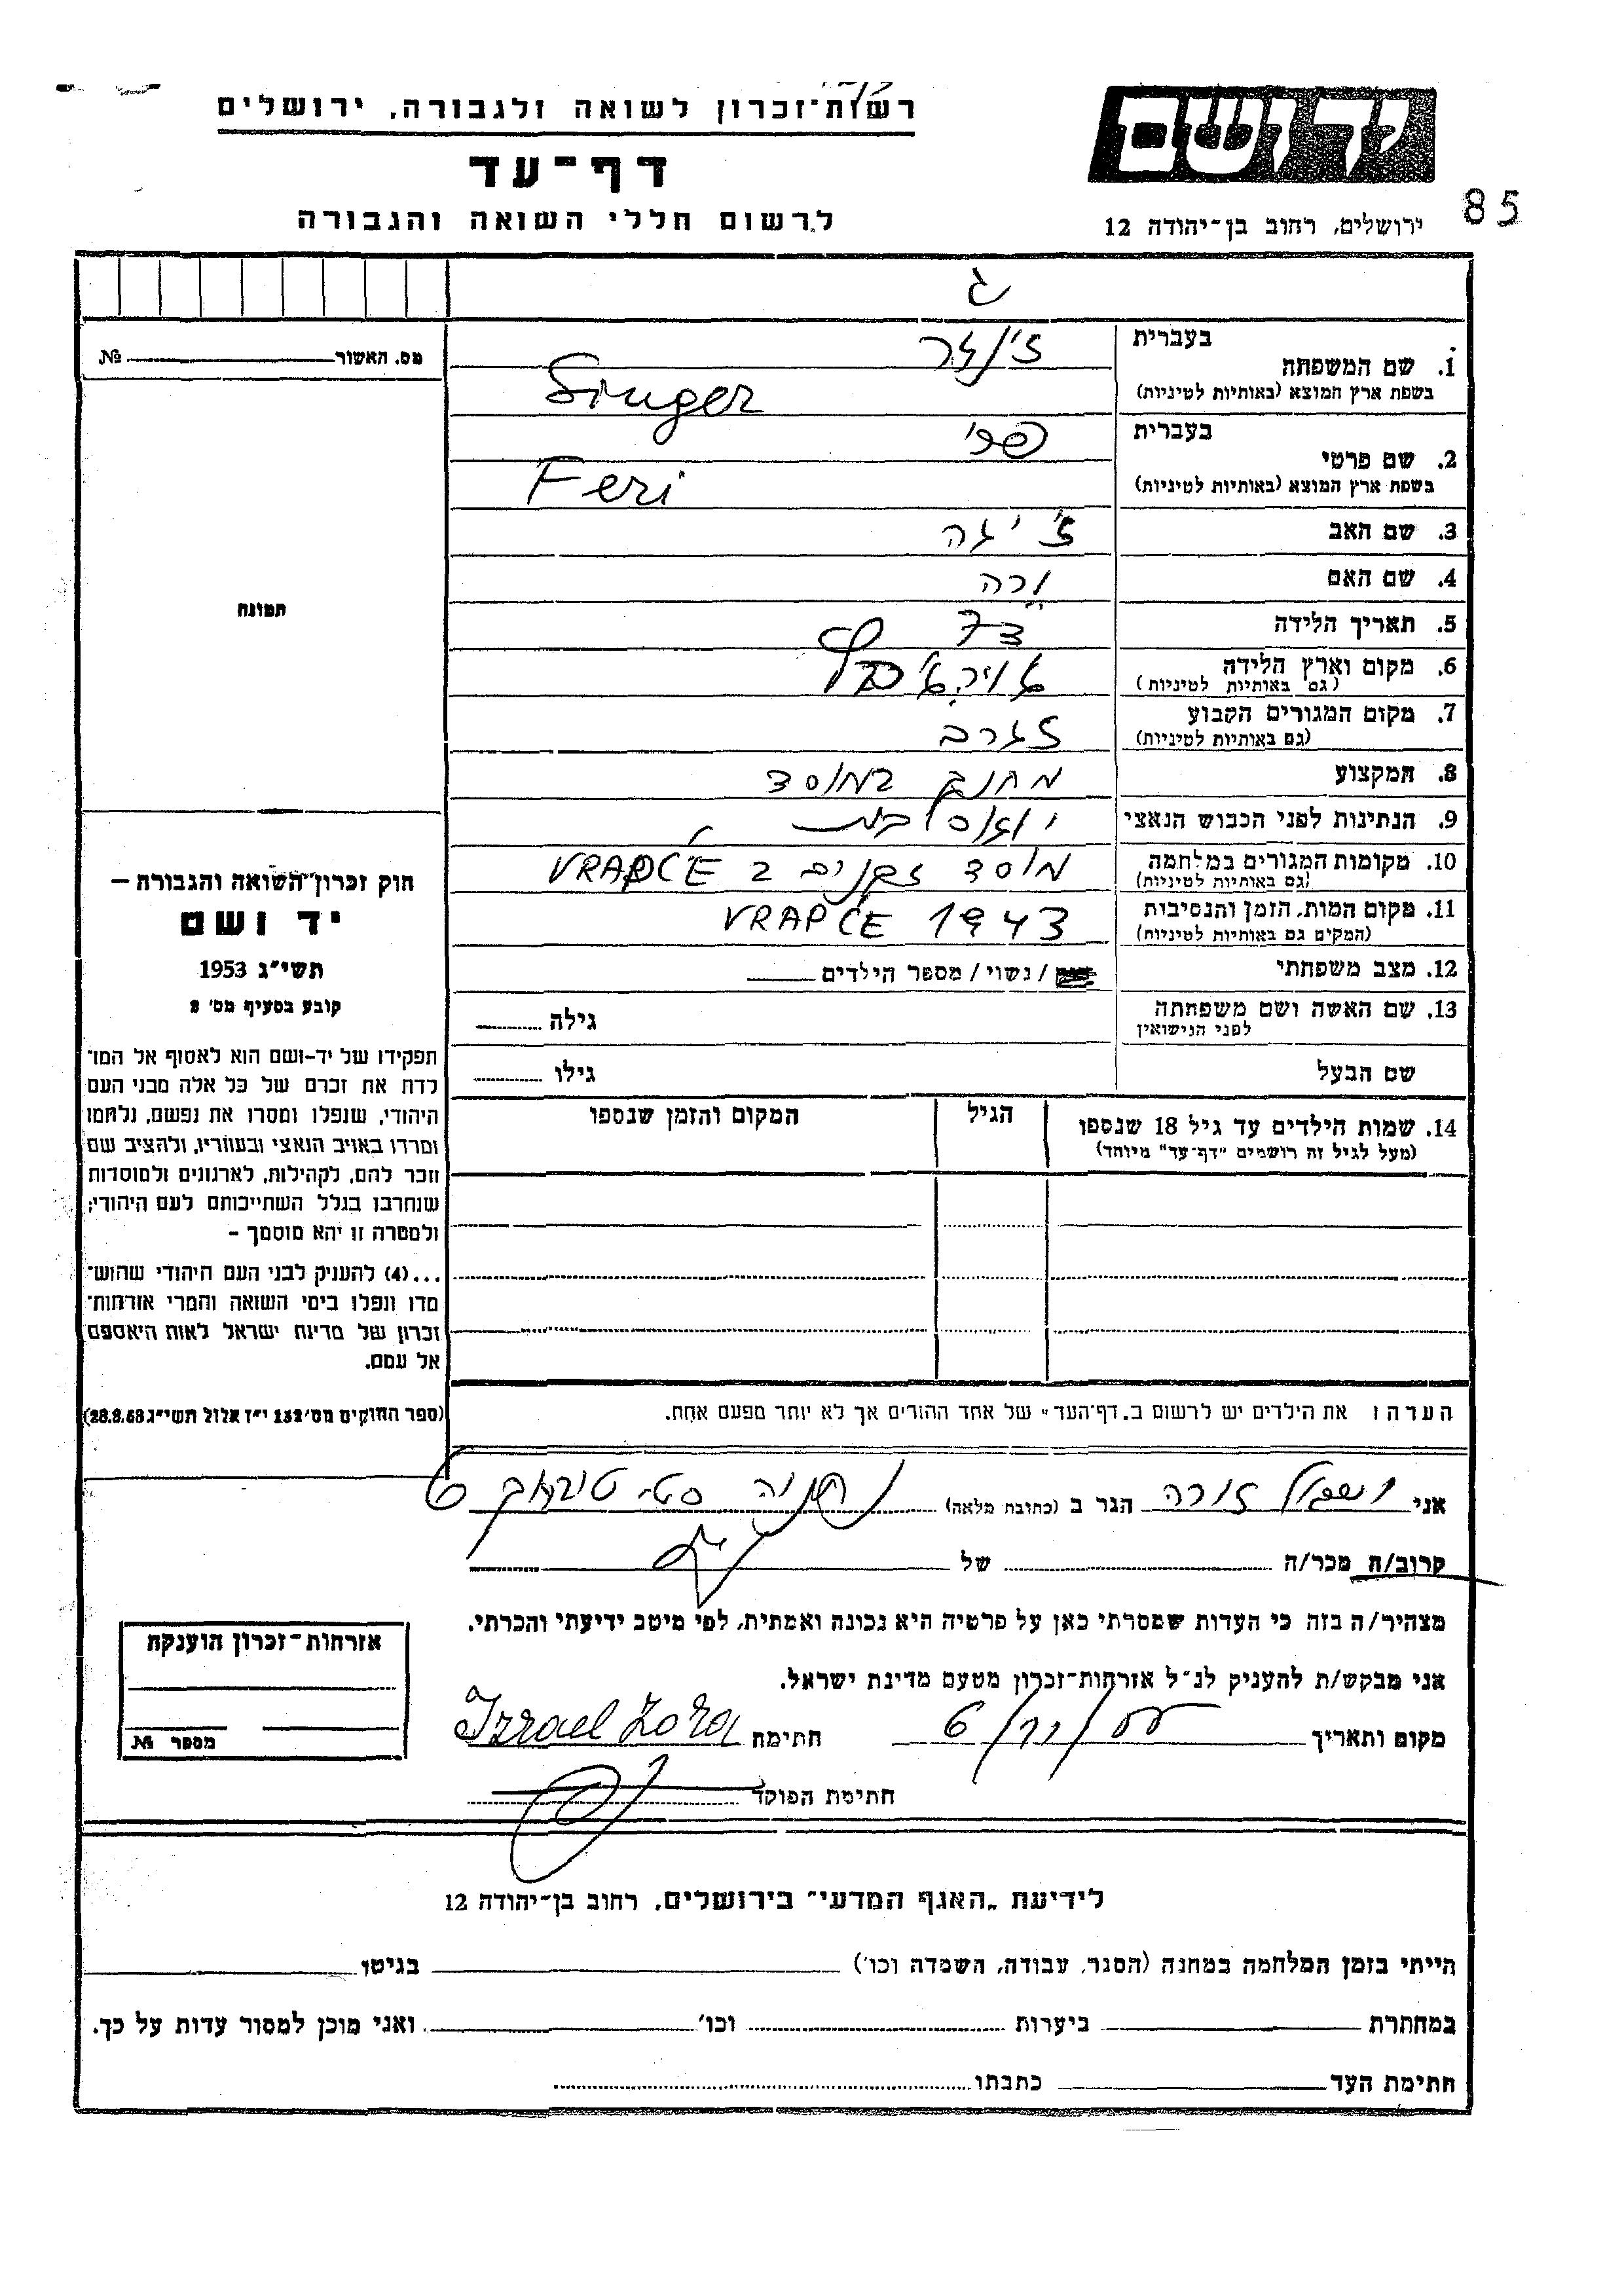 רשות־זכרון לשואה ולגבורה, ירושלים
יד ושם
דף־עד
לרשום חללי השואה והגבורה
ירושלים, רחוב בן־יהודה 12
85
מס. האשור № 
תמונה
1. שם המשפחה
בעברית זינגר
בשפת ארץ המוצא (באותיות לטיניות) Singer
2. שם פרטי
בעברית פרי
בשפת ארץ המוצא (באותיות לטיניות) Feri
3. שם האב ז'יגה
4. שם האם ורה
5. תאריך הלידה
6. מקום וארץ הלידה
(גם באותיות לטיניות)
7. מקום המגורים הקבוע זגרב
(גם באותיות לטיניות)
8. המקצוע מחנך במוסד
9. הנתינות לפני הכבוש הנאצי
10. מקומות המגורים במלחמה מוסד זקנים ב VRAPČE
(גם באותיות לטיניות)
11. מקום המות, הזמן והנסיבות VRAPČE 1943
(המקום גם באותיות לטיניות)
12. מצב משפחתי / נשוי / מספר הילדים
13. שם האשה ושם משפחתה גילה
לפני הנישואין
שם הבעל גילו
14. שמות הילדים עד גיל 18 שנספו הגיל המקום והזמן שנספו
(מעל לגיל זה רושמים "דף־עד" מיוחד)
חוק זכרון השואה והגבורה —
יד ושם
תשי"ג 1953
קובע בסעיף מס' 2
תפקידו של יד-ושם הוא לאסוף אל המו־
לדת את זכרם של כל אלה מבני העם
היהודי, שנפלו ומסרו את נפשם, נלחמו
ומרדו באויב הנאצי ובעוזריו, ולהציב שם
וזכר להם, לקהילות, לארגונים ולמוסדות
שנחרבו בגלל השתייכותם לעם היהודי;
ולמטרה זו יהא מוסמך —
...(4) להעניק לבני העם היהודי שהוש־
מדו ונפלו בימי השואה והמרי אזרחות־
זכרון של מדינת ישראל לאות היאספם
אל עמם.
(ספר החוקים מס' 132 י"ז אלול תשי"ג 28.8.53)
הערה: את הילדים יש לרשום ב„דף־העד" של אחד ההורים אך לא יותר מפעם אחת.
אני ישראל זורה הגר ב (כתובת מלאה) נתניה
קרוב/ה מכר/ה של
מצהיר/ה בזה כי העדות שמסרתי כאן על פרטיה היא נכונה ואמתית, לפי מיטב ידיעתי והכרתי.
אני מבקש/ת להעניק לנ"ל אזרחות־זכרון מטעם מדינת ישראל.
מקום ותאריך חתימת Izrael Zora
חתימת הפוקד
אזרחות־זכרון הוענקה
מספר №
לידיעת „האגף המדעי" בירושלים, רחוב בן־יהודה 12
הייתי בזמן המלחמה במחנה (הסגר, עבודה, השמדה וכו') בגיטו
במחתרת ביערות וכו' ואני מוכן למסור עדות על כך.
חתימת העד כתבתו